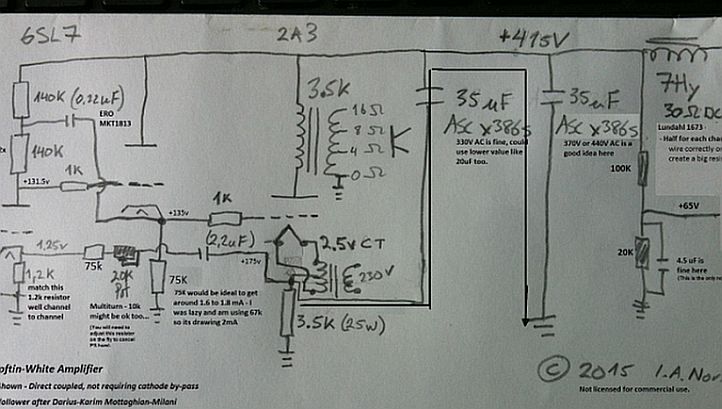 6SL7
2A3
+415V
140K (0,22uF)
ERO
MKT1813
3.5K
16Ω
8Ω
4Ω
0Ω
35uF
ASC x386s
330V AC is fine, could
use lower value like
20uF too.
35uF
ASC x386s
370V or 440V AC is a
good idea here
7Hy
30Ω DC
Lundahl 1673 -
- Half for each chan
wire correctly or
create a big resi
140K
1K
+131.5v
100K
1K
+135v
+65V
1,25v
75k
20K
Pot
(2,2uF)
+175v
2,5v CT
230V
20K
4.5 uF is
fine here
(This is the only
1,2K
match this
1.2k resistor
well channel
to channel
Multiturn - 10k
might be ok too...
(You will need to
adjust this resistor
on the fly to cancel
75K
75K would be ideal to get
around 1.6 to 1.8 mA - I
was lazy and am using 67k
so its drawing 2mA
3.5K (25W)
oftin-White Amplifier
hown - Direct coupled, not requiring cathode by-pass
follower after Darius-Karim Mottaghian-Milani
© 2015 I.A. Nor
Not licensed for commercial use.